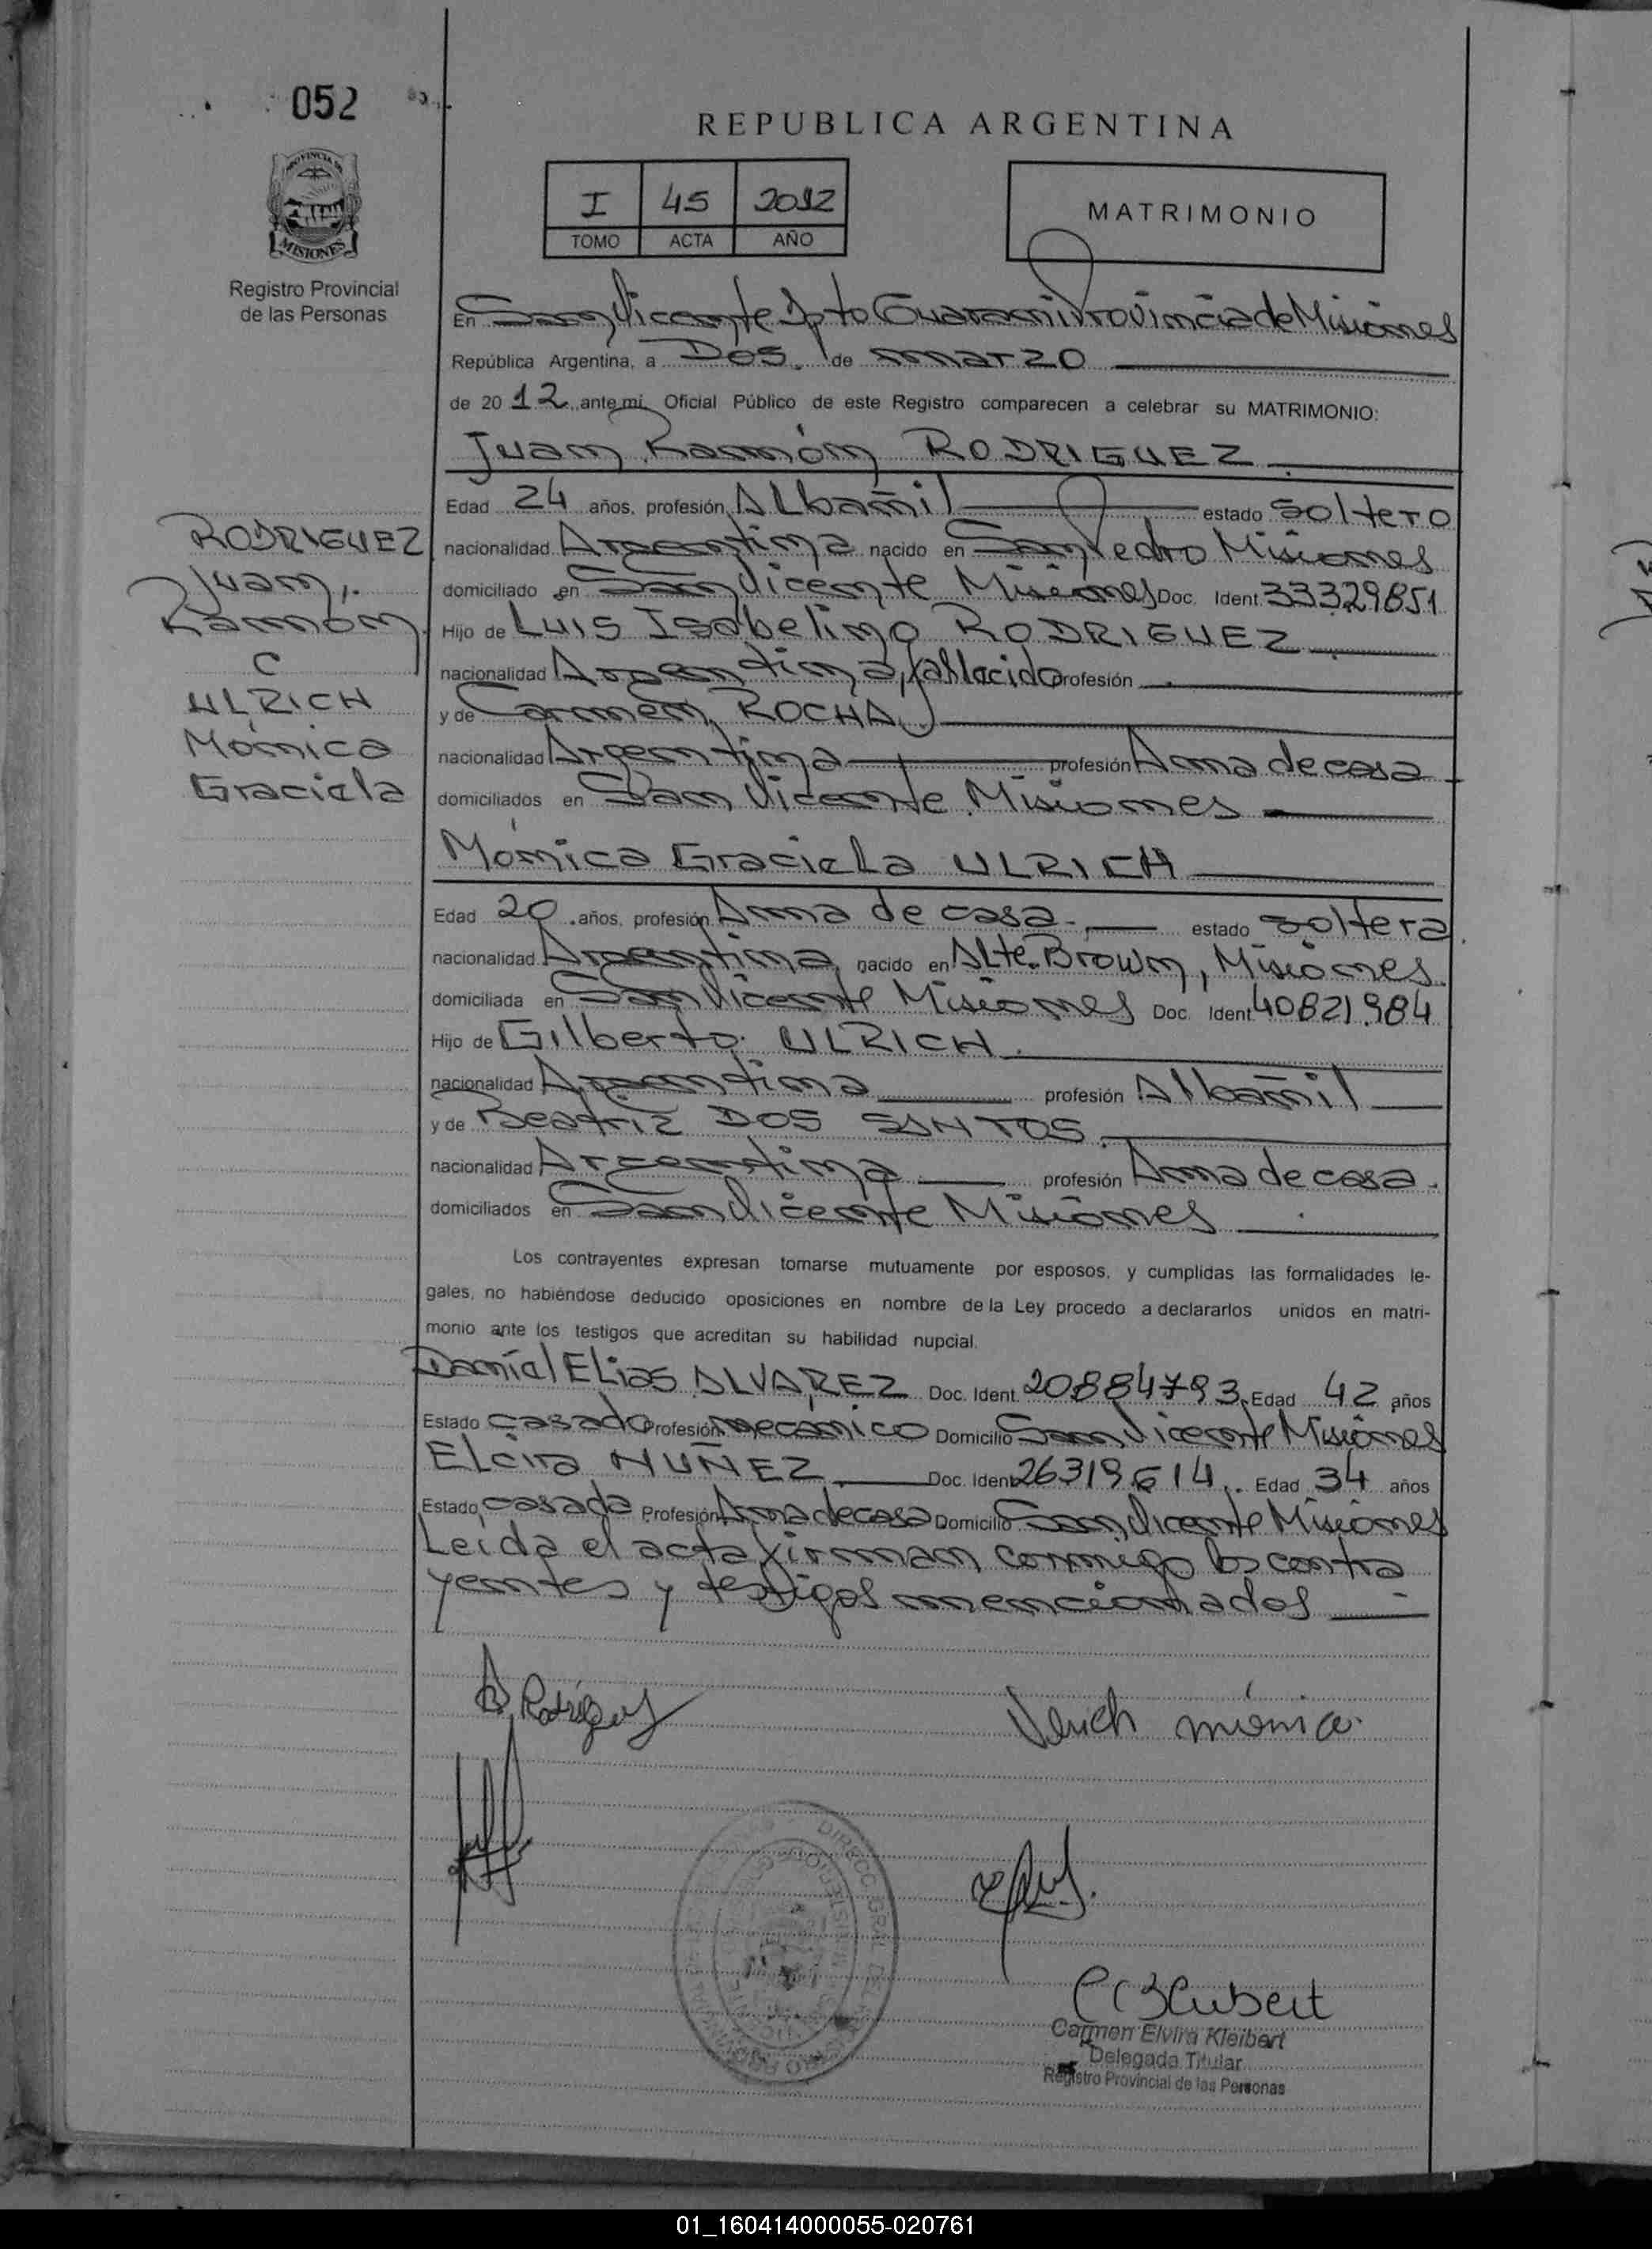 052
REPUBLICA ARGENTINA
I 45 2012
TOMO ACTA AÑO
MATRIMONIO
PROVINCIA DE
MISIONES
Registro Provincial
de las Personas
En San Vicente Dpto Guarani Provincia de Misiones
República Argentina, a Dos de marzo
de 2012 ante mi, Oficial Público de este Registro comparecen a celebrar su MATRIMONIO:
Juan Ramón RODRIGUEZ
Edad 24 años, profesión Albañil estado soltero
nacionalidad Argentina nacido en San Pedro Misiones
domiciliado en San Vicente Misiones Doc. Ident. 33329851
Hijo de Luis Isabelino RODRIGUEZ
nacionalidad Argentina, fallecido profesión
y de Carmen ROCHA
nacionalidad Argentina profesión Ama de casa
domiciliados en San Vicente Misiones
RODRIGUEZ
Juan
Ramón
C
ULRICH
Mónica
Graciela
Mónica Graciela ULRICH
Edad 20 años, profesión Ama de casa estado soltera
nacionalidad Argentina nacido en Alte. Brown, Misiones
domiciliada en San Vicente Misiones Doc. Ident 40821984
Hijo de Gilberto ULRICH
nacionalidad Argentina profesión Albañil
y de Beatriz DOS SANTOS
nacionalidad Argentina profesión Ama de casa
domiciliados en San Vicente Misiones
Los contrayentes expresan tomarse mutuamente por esposos, y cumplidas las formalidades le-
gales, no habiéndose deducido oposiciones en nombre de la Ley procedo a declararlos unidos en matri-
monio ante los testigos que acreditan su habilidad nupcial.
Daniel Elias ALVAREZ Doc. Ident. 20884793 Edad 42 años
Estado casado Profesión mecanico Domicilio San Vicente Misiones
Elcira NUÑEZ Doc. Ident 26319614 Edad 34 años
Estado casada Profesión Ama de casa Domicilio San Vicente Misiones
Leida el acta firman conmigo los contra
yentes y testigos mencionados
Rodriguez
Ulrich mónica
Carmen Elvira Kleibert
Delegada Titular
Registro Provincial de las Personas
01_160414000055-020761